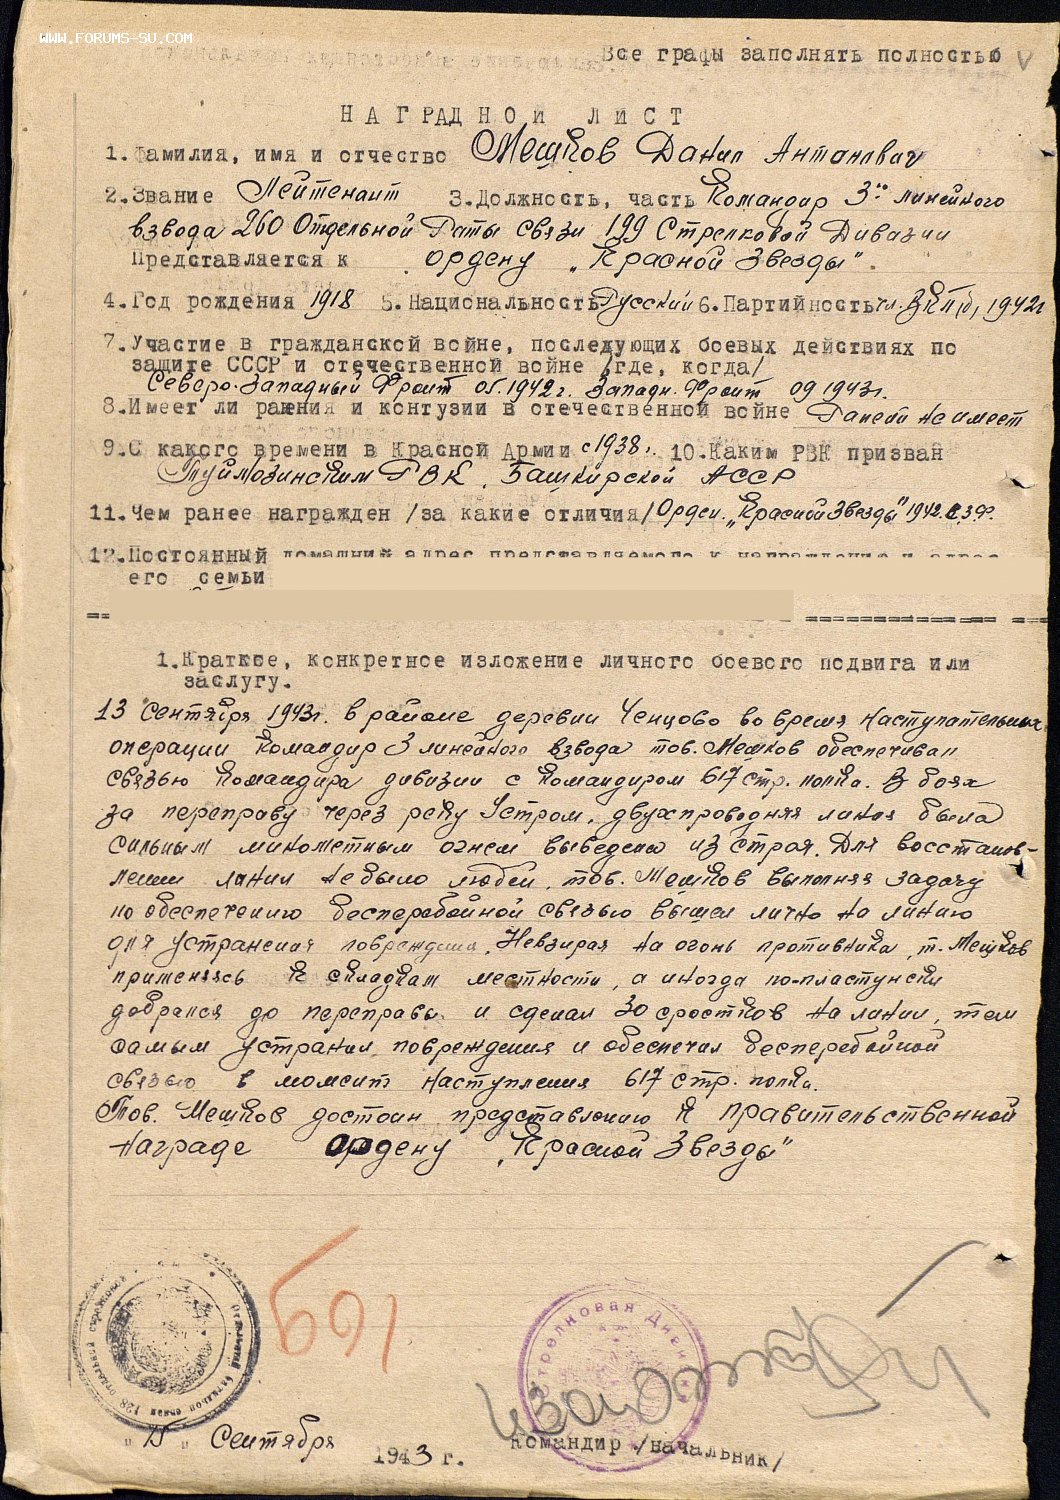 WWW.FORUMS-SU.COM
Все графы заполнять полностью
НАГРАДНОЙ ЛИСТ
1. Фамилия, имя и отчество Мешков Данил Антонович
2. Звание Лейтенант 3. Должность, часть Командир 3го линейного
взвода 260 Отдельной Роты связи 199 Стрелковой Дивизии
Представляется к ордену „Красной Звезды".
4. Год рождения 1918 5. Национальность Русский 6. Партийность чл. ВКП(б), 1942г
7. Участие в гражданской войне, последующих боевых действиях по
защите СССР и отечественной войне /где, когда/
Северо-Западный Фронт 05.1942г. Западн. Фронт 09 1943г.
8. Имеет ли ранения и контузии в отечественной войне Ранений не имеет
9. С какого времени в Красной Армии с 1938г. 10. Каким РВК призван
Туймозинским РВК, Башкирской АССР
11. Чем ранее награжден /за какие отличия/ Орден „Красной Звезды" 1942 С.З.Ф.
12. Постоянный домашний адрес представляемого к награждению и адрес
его семьи
1. Краткое, конкретное изложение личного боевого подвига или
заслугу.
13 Сентября 1943г. в районе деревни Ченцово во время наступательных
операции командир 3 линейного взвода тов. Мешков обеспечивал
связью командира дивизии с командиром 617 стр. полка. В боях
за переправу через реку Устром, двухпроводняя линия была
сильным минометным огнем выведена из строя. Для восстанов-
лении линии не было людей, тов. Мешков выполняя задачу
по обеспечению бесперебойной связью вышел лично на линию
для устранения повреждения. Невзирая на огонь противника, т. Мешков
применяясь к складкам местности, а иногда по-пластунски
добрался до переправы и сделал 30 сростков на линии, тем
самым устранил повреждения и обеспечил бесперебойной
связью в момент наступления 617 стр. полка.
Тов. Мешков достоин представлению к правительственной
награде ордену „Красной Звезды"
Стрелковая Дивизия
„15" Сентября 1943 г.
Командир /начальник/